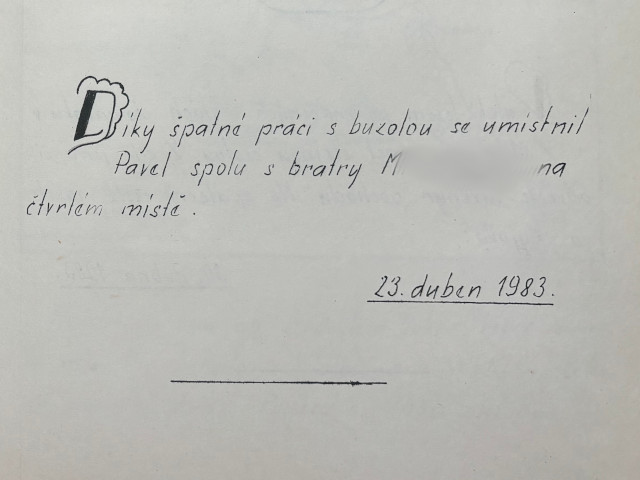 Díky špatné práci s buzolou se umístnil
Pavel spolu s bratry M na
čtvrtém místě.
23. duben 1983.